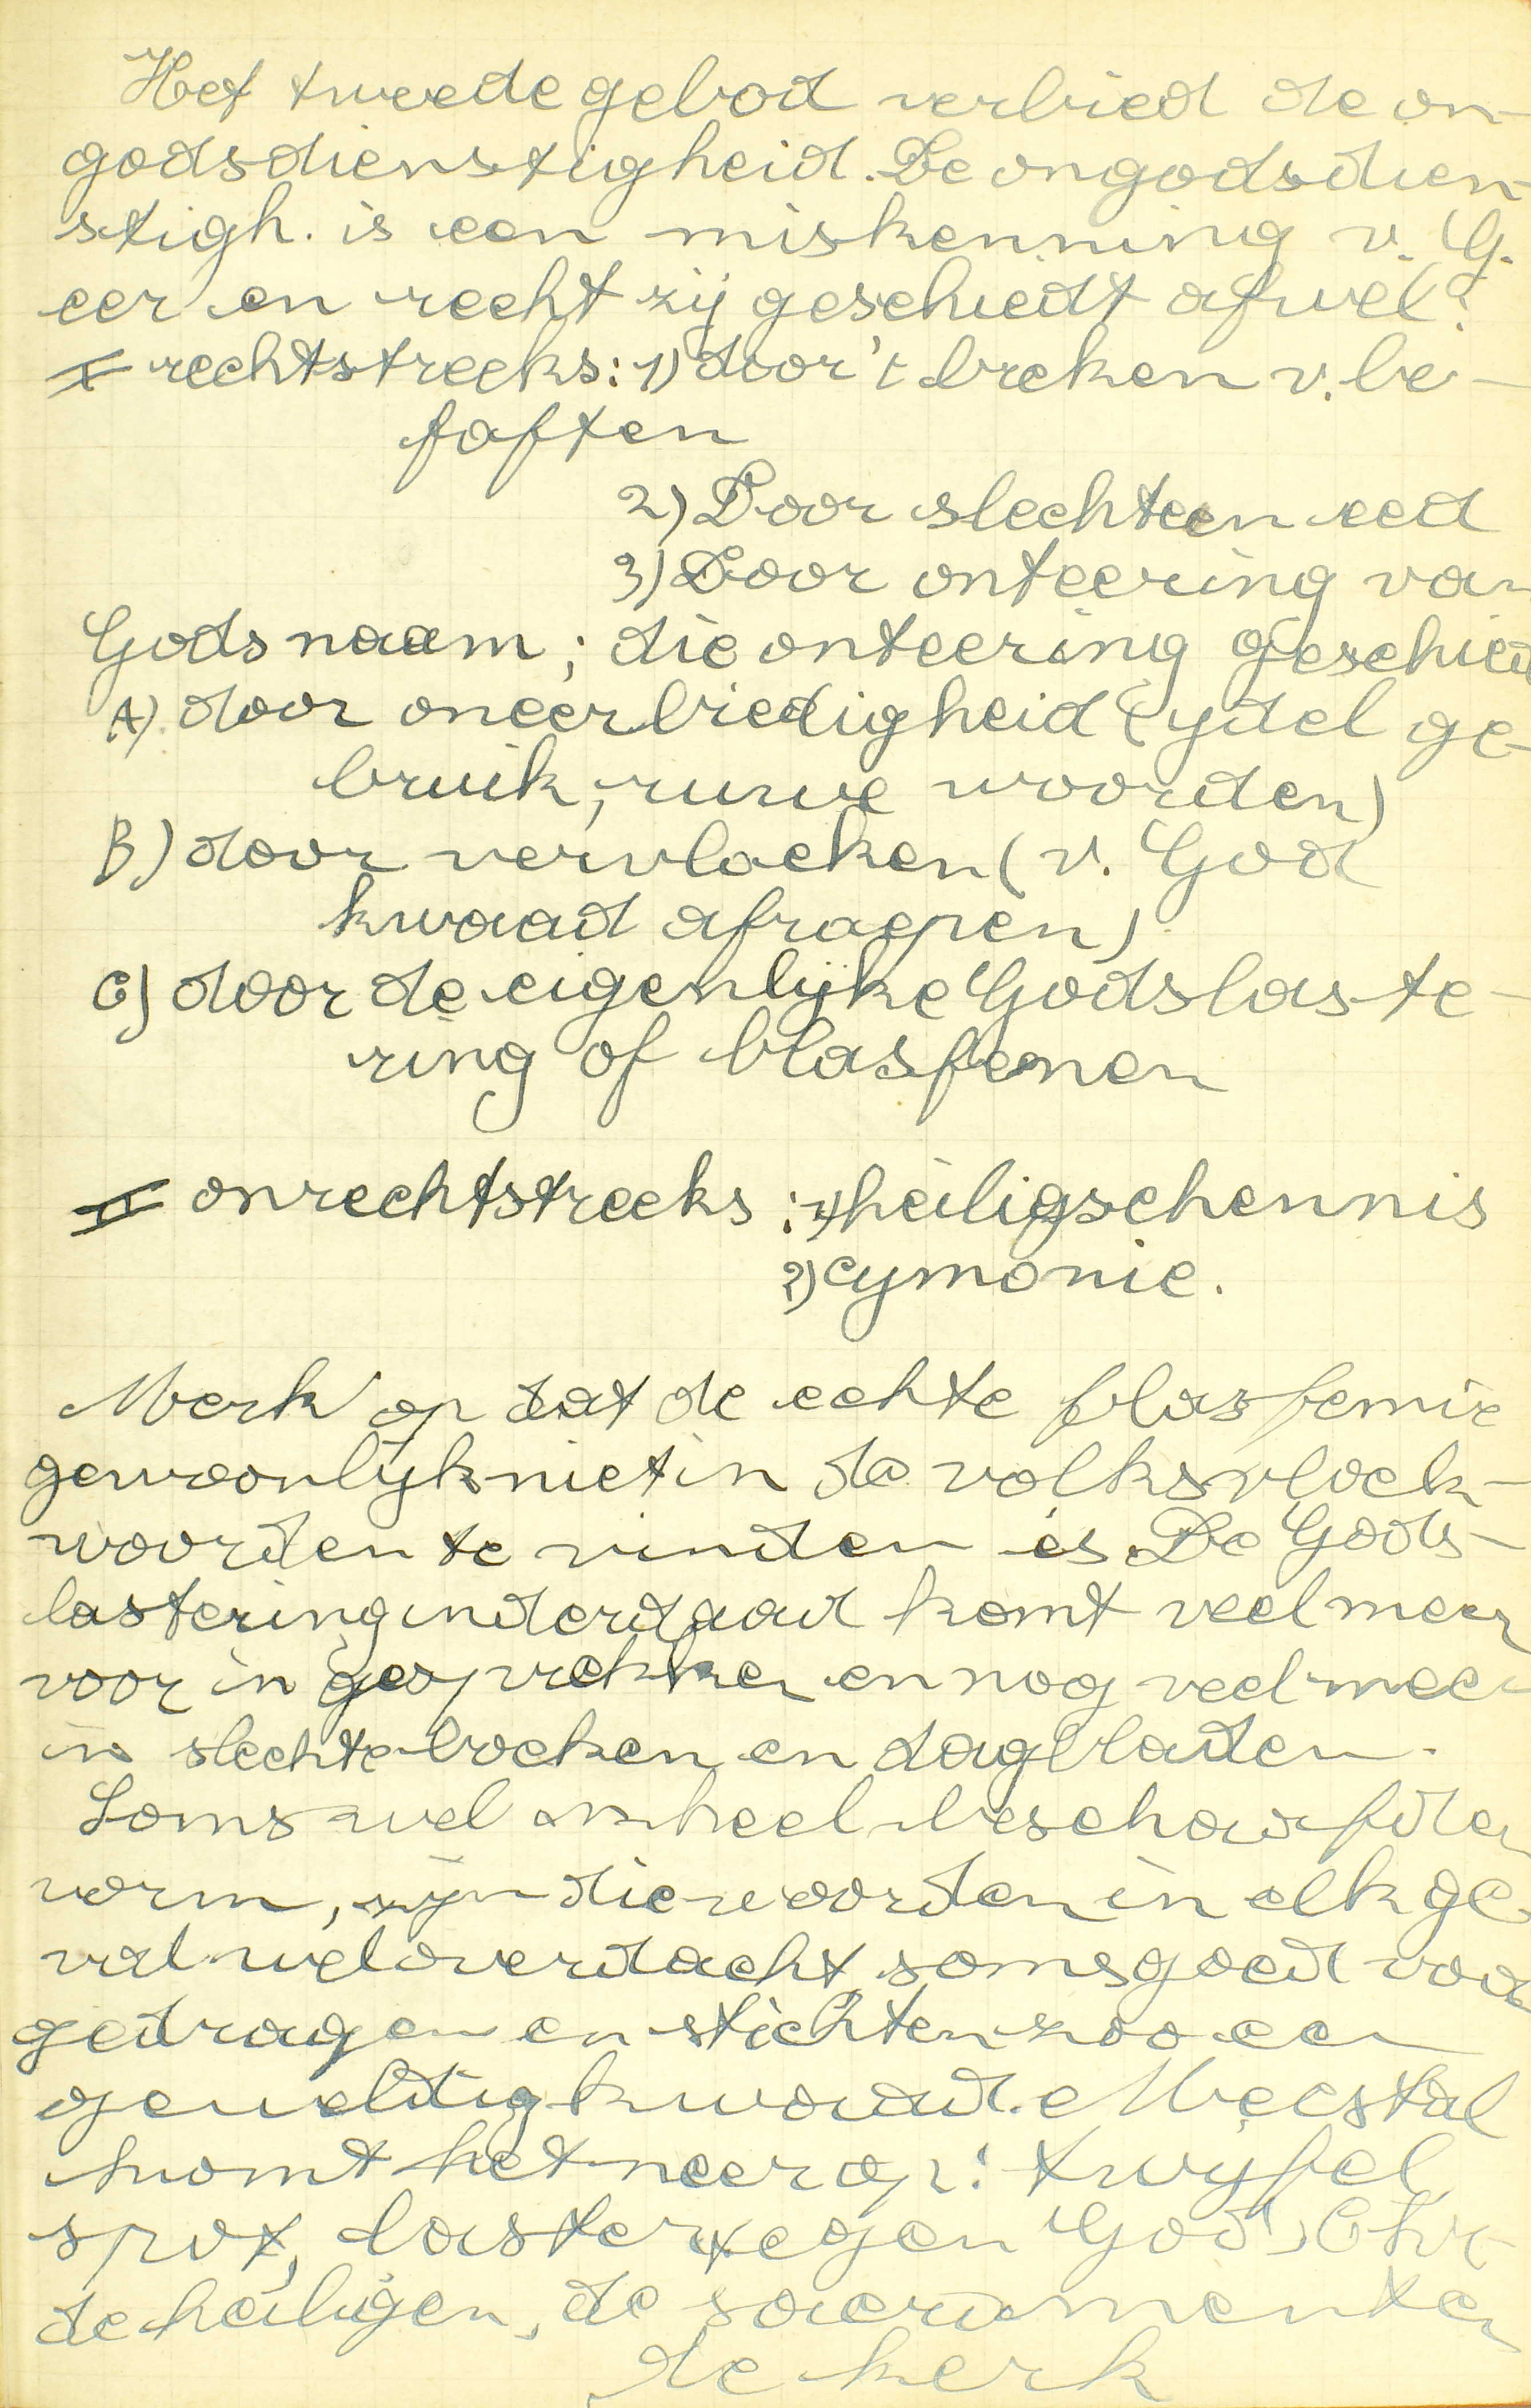 Het tweede gebod verbied de on-
godsdienstigheid. De ongodsdien-
stigh. is een miskenning v. G.
eer en recht zij geschiedt ofwel:
I rechtstreeks: 1) door 't breken v. be-
loften
2) Door slechten eed
3) Door onteering van
Gods naam; die onteering geschied
A) door oneerbiedigheid (ydel ge-
bruik, ruwe woorden)
B) door vervloeken (v. God
kwaad afroepen)
C) door de eigenlijke Godslaste-
ring of blasfemen
II onrechtstreeks: 1) heiligschennis
2) cymonie.
Merk op dat de echte blasfemie
gewoonlijk niet in de volksvloek-
woorden te vinden is. De Gods-
lastering inderdaad komt veel meer
voor in gesprekken en nog veel meer
in slechte boeken en dagbladen.
Soms wel in heel beschaafden
vorm, zijn die woorden in elk ge
val weloverdacht soms goed voor
gedragen en stichten zoo een
geweldig kwaad. Meestal
komt het neer op: twyfel
spot, laster tegen God, Chr
de heiligen, de sacramenten
de kerk